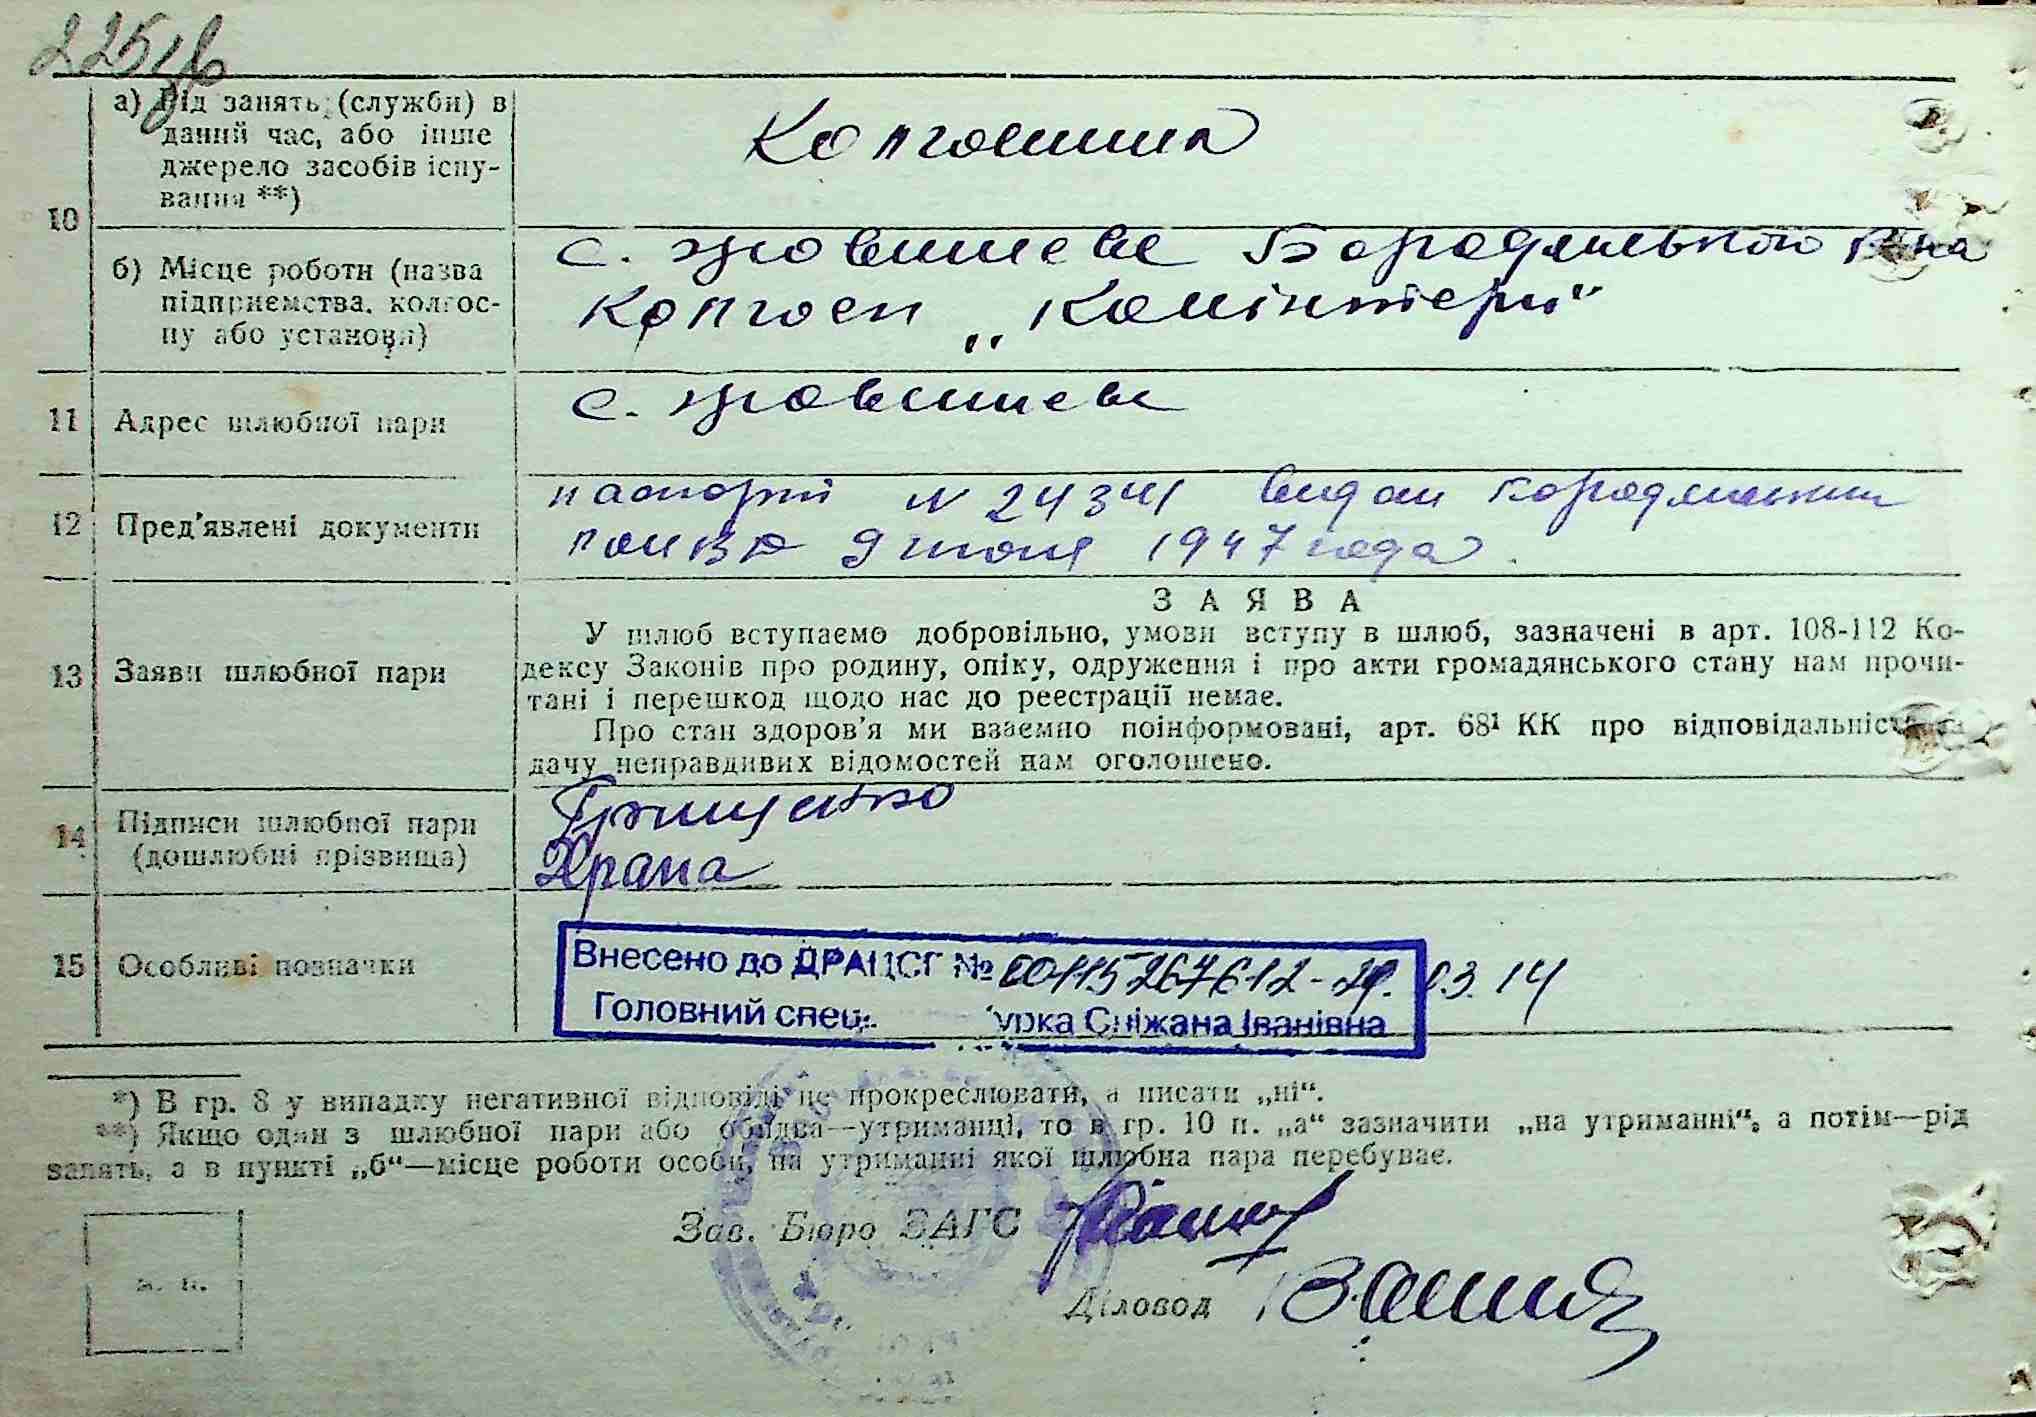 225
а) Рід занять (службн) в
даний час, або інше
джерело засобів існу-
вання **)
Колгоспниця
10
б) Місце роботи (назва
підприємства, колгос-
пу або установи)
с. Бородянського р-на
Колгосп „Комінтерн“
11 Адрес шлюбної пари
с.
12 Пред'явлені документи
паспорт N 24341 видан Бородянським
9 июня 1947 года.
13 Заяви шлюбної пари
ЗАЯВА
У шлюб вступаємо добровільно, умови вступу в шлюб, зазначені в арт. 108-112 Ко-
дексу Законів про родину, опіку, одруження і про акти громадянського стану нам прочи-
тані і перешкод щодо нас до реєстрації немає.
Про стан здоров'я ми взаємно поінформовані, арт. 68¹ КК про відповідальність за
дачу неправдивих відомостей нам оголошено.
14 Підписи шлюбної пари
(дошлюбні прізвища)
Грищенко
Храпа
15 Особливі позначки
Внесено до ДРАЦСГ № 00115267612-29.03.14
Головний спец. Сніжана Іванівна
*) В гр. 8 у випадку негативної відповіді не прокреслювати, а писати „ні“.
**) Якщо один з шлюбної пари або обидва—утриманці, то в гр. 10 п. „а“ зазначити „на утриманні“, а потім—рід
занять, а в пункті „б“—місце роботи особи, на утриманні якої шлюбна пара перебуває.
Зав. Бюро ЗАГС
Діловод
м. п.